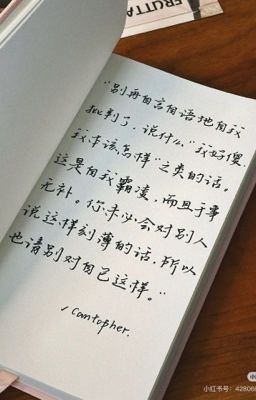 FRUTTA
"别再自言自语地自我
批判了，说什么"我好傻，
我本该怎样"之类的话。
这是自我霸凌，而且于事
无补。你未必会对别人
说这样刻薄的话，所以
也请别对自己这样。"
/ Cantopher.
小红书号：428068